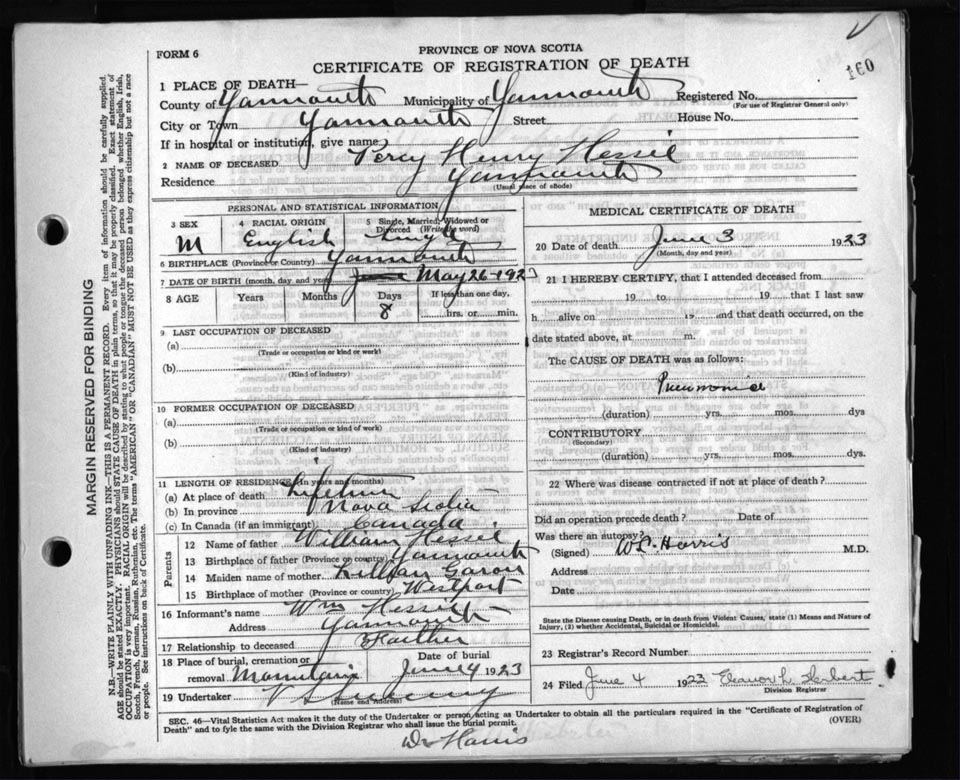 FORM 6
PROVINCE OF NOVA SCOTIA
CERTIFICATE OF REGISTRATION OF DEATH
160
1 PLACE OF DEATH—
County of Yarmouth Municipality of Yarmouth Registered No.
(For use of Registrar General only)
City or Town Yarmouth Street House No.
If in hospital or institution, give name
2 NAME OF DECEASED Percy Henry Hessil
Residence Yarmouth
(Usual place of abode)
PERSONAL AND STATISTICAL INFORMATION
3 SEX 4 RACIAL ORIGIN 5 Single, Married, Widowed or Divorced (Write the word)
M English Single
6 BIRTHPLACE (Province or Country) Yarmouth
7 DATE OF BIRTH (month, day and year) May 26 1923
8 AGE Years Months Days If less than one day,
8 hrs. or min.
9 LAST OCCUPATION OF DECEASED
(a)
(Trade or occupation or kind or work)
(b)
(Kind of industry)
10 FORMER OCCUPATION OF DECEASED
(a)
(Trade or occupation or kind of work)
(b)
(Kind of industry)
11 LENGTH OF RESIDENCE (in years and months)
(a) At place of death Lifetime
(b) In province Nova Scotia
(c) In Canada (if an immigrant) Canada
Parents
12 Name of father William Hessil
13 Birthplace of father (Province or country) Yarmouth
14 Maiden name of mother Lillian
15 Birthplace of mother (Province or country) Westport
16 Informant's name Wm Hessil
Address Yarmouth
17 Relationship to deceased Father
18 Place of burial, cremation or removal Date of burial
Mountain June 4 1923
19 Undertaker V S Sweeny
(Name and Address)
MEDICAL CERTIFICATE OF DEATH
20 Date of death June 3 1923
(Month, day and year)
21 I HEREBY CERTIFY, that I attended deceased from
19 to 19 that I last saw
h alive on 19 and that death occurred, on the
date stated above, at m.
The CAUSE OF DEATH was as follows:
Pneumonia
(duration) yrs. mos. dys
CONTRIBUTORY
(Secondary)
(duration) yrs. mos. dys.
22 Where was disease contracted if not at place of death?
Did an operation precede death? Date of
Was there an autopsy?
(Signed) W C Harris M.D.
Address
Date
State the Disease causing Death, or in death from Violent Causes, state (1) Means and Nature of Injury, (2) whether Accidental, Suicidal or Homicidal.
23 Registrar's Record Number
24 Filed June 4 1923 Eleanor L Herbert
Division Registrar
SEC. 46—Vital Statistics Act makes it the duty of the Undertaker or person acting as Undertaker to obtain all the particulars required in the "Certificate of Registration of
Death" and to fyle the same with the Division Registrar who shall issue the burial permit.
(OVER)
Dr Harris
MARGIN RESERVED FOR BINDING
N.B.—WRITE PLAINLY WITH UNFADING INK—THIS IS A PERMANENT RECORD. Every item of information should be carefully supplied.
AGE should be stated EXACTLY. PHYSICIANS should STATE CAUSE OF DEATH in plain terms, so that it may be properly classified. Exact statement of
OCCUPATION is very important. RACIAL ORIGIN will be described by stating to what people or tongue the deceased person belonged whether English, Irish,
Scotch, French, German, Russian, Ruthenian, etc. The terms "AMERICAN" OR "CANADIAN" MUST NOT BE USED as they express citizenship but not a race
or people. See instructions on back of Certificate.